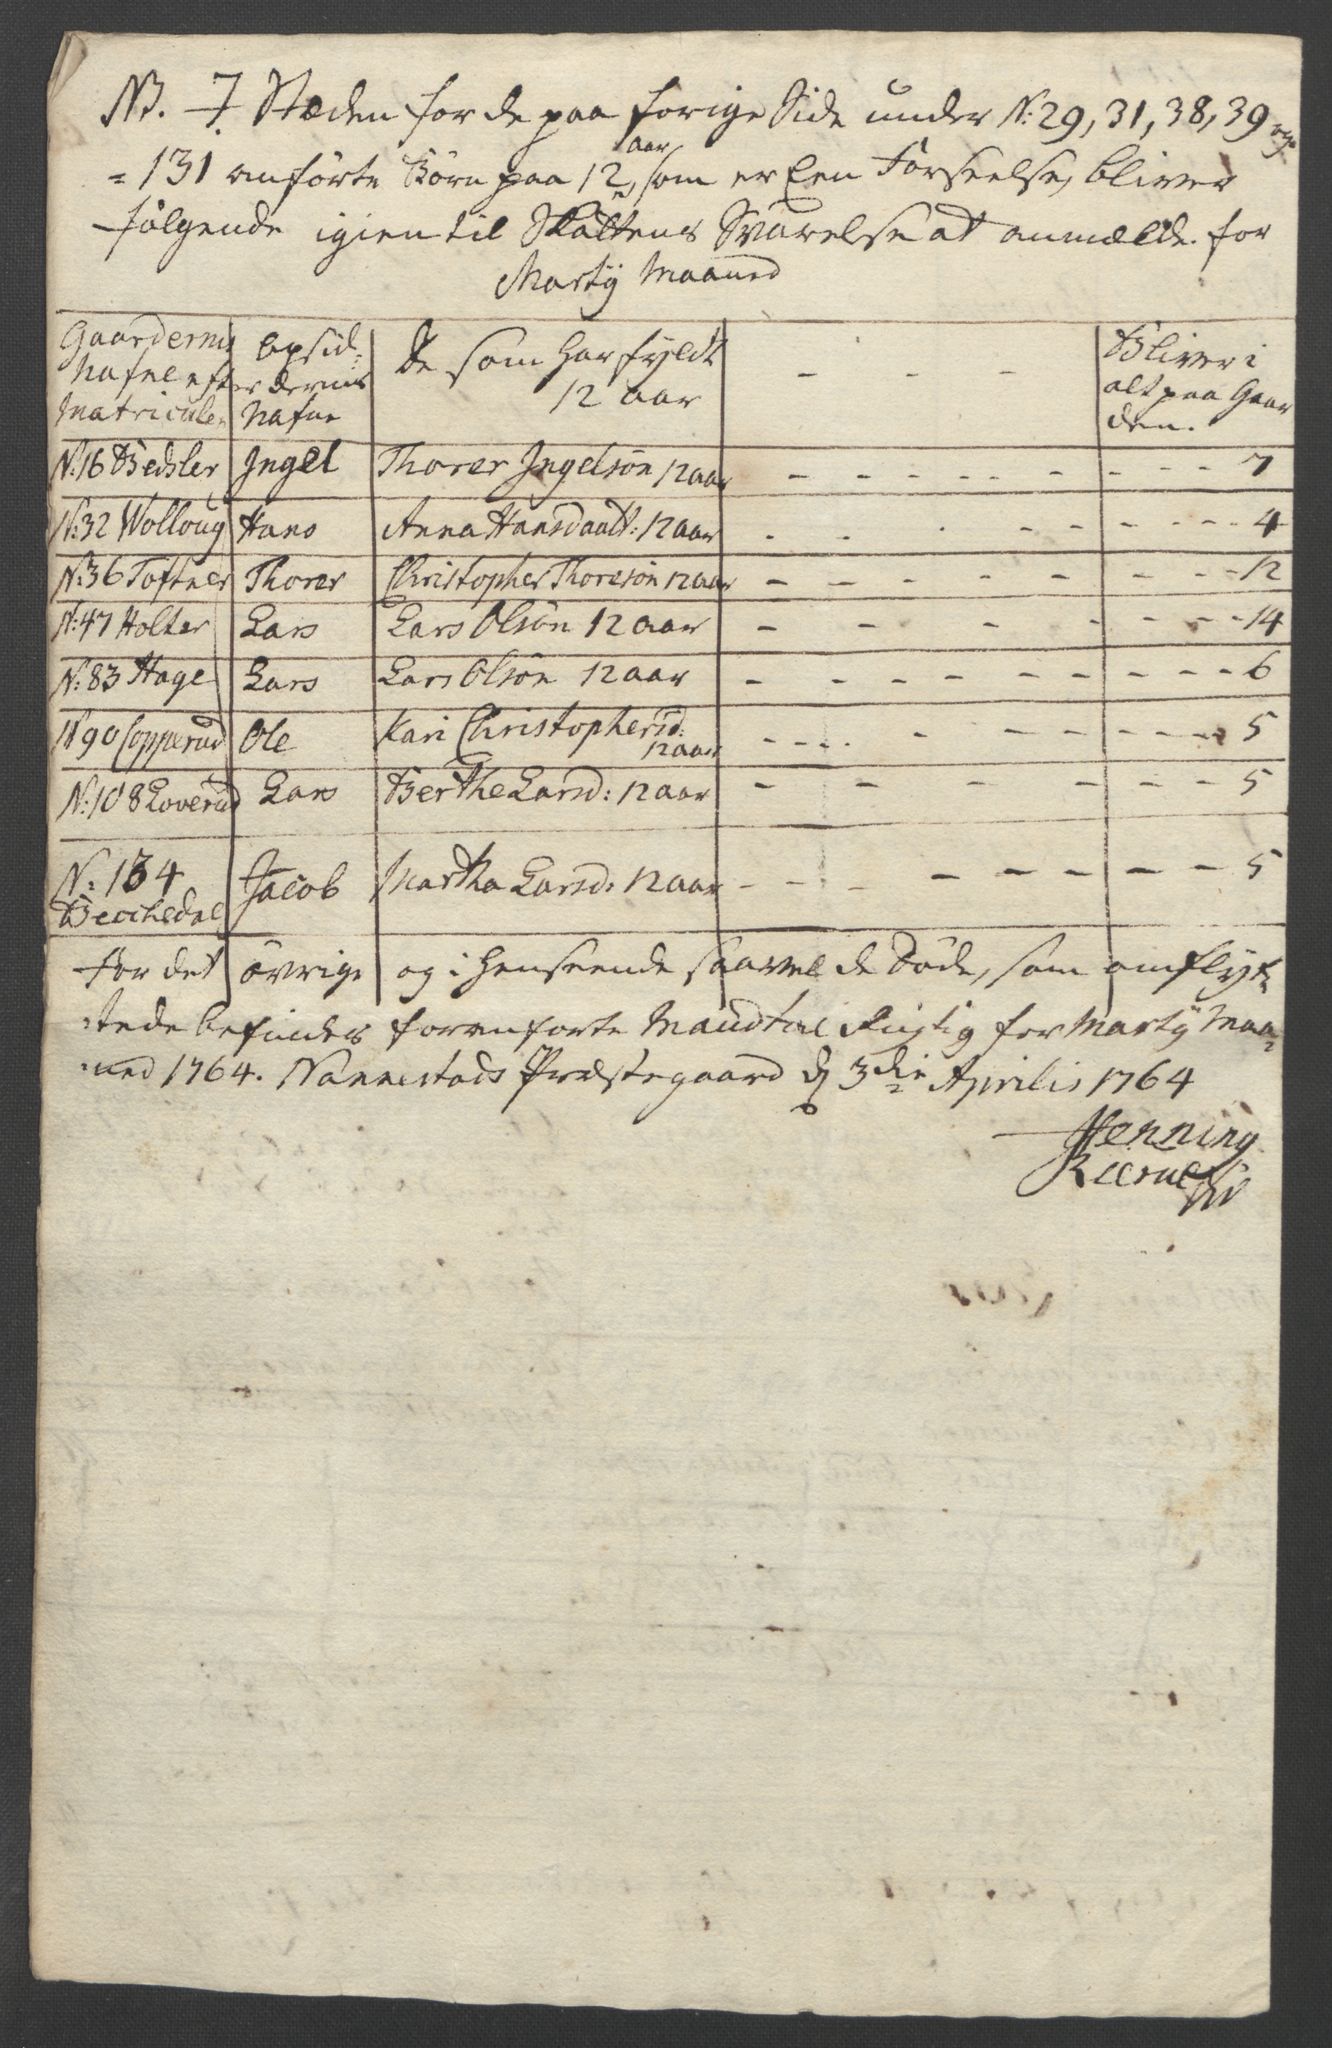 NB. I Stæden for de paa forige Side under N: 29, 31, 38, 39 og
= 131 anførte Børn paa 12 aar, som er een Forseelse, bliver
følgende igien til Skattens Svarelse at anmælde for
Martÿ Maaned
Gaardernis Nafne efter Matriculen | Opsiddernis Nafne | De som har fyldt 12 aar | - - - | Bliver i alt paa Gaarden.
N: 16 Bedsler | Ingel | Thorer Ingelsön 12 aar | - - - | 7
N: 32 Wolloug | Hans | Anna Hansdaatt: 12 aar | - - - | 4
N: 36 Toftner | Thorer | Christopher Thoresön 12 aar | - - - | 12
N: 47 Holter | Lars | Lars Olsön 12 aar | - - - | 14
N: 83 Hage | Lars | Lars Olsön 12 aar | - - - | 6
N 90 Copperud | Ole | Kari Christophersd: 12 aar | - - - | 5
N: 108 Loverud | Lars | Berthe Larsd: 12 aar | - - - | 5
N: 134 Becchedal | Jacob | Martha Larsd: 12 aar | - - - | 5
For det övrige og i Henseende saavel de Döde, som omflyt=
=tede befindes foranførte Mandtal Rigtig for Martÿ Maa=
=ned 1764. Nannestads Præstegaard d 3die Aprilis 1764
Henning